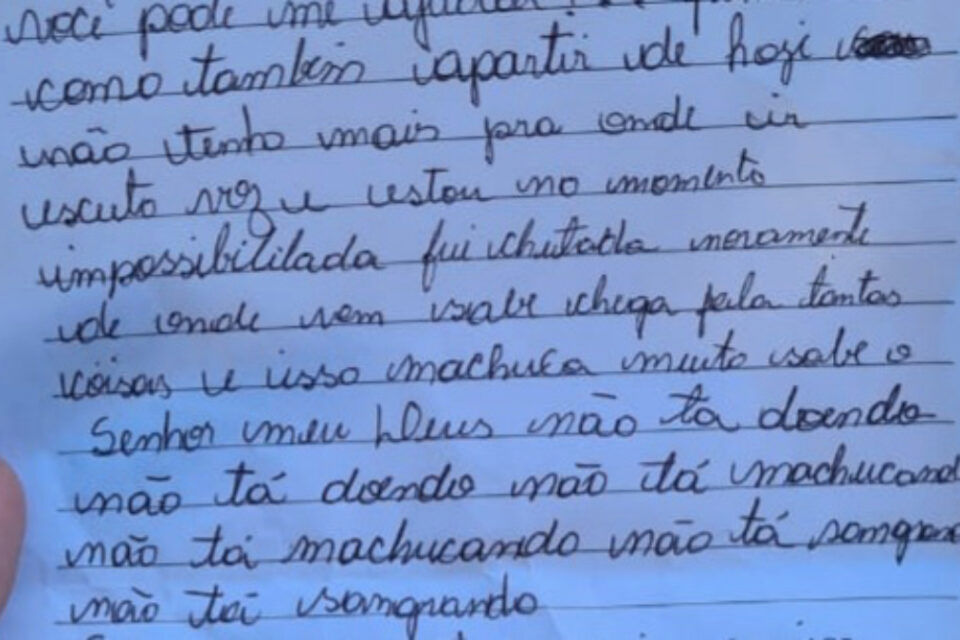 você pode me ajudar
como também apartir de hoji
não tenho mais pra onde ir
escuto voz e estou no momento
impossibililada fui chutada novamente
de onde vem sabe chega fala tantas
coisas e isso machuca muito sabe o
Senhor meu Deus não ta doendo
não tá doendo não tá machucand
não tá machucando não tá sangran
não tá sangrando